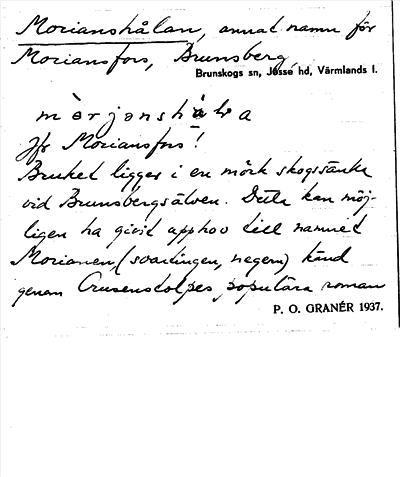 Morianshålan, annat namn för
Moriansfors, Brunsberg
Brunskogs sn, Jösse hd, Värmlands l.
mo̱rjanshå̱la
Jfr Moriansfors!
Bruket ligger i en mörk skogssänka
vid Brunsbergsälven. Detta kan möj-
ligen ha givit upphov till namnet
Morianen (svartingen, negern) känd
genom Crusenstolpes populära roman
P. O. GRANÉR 1937.